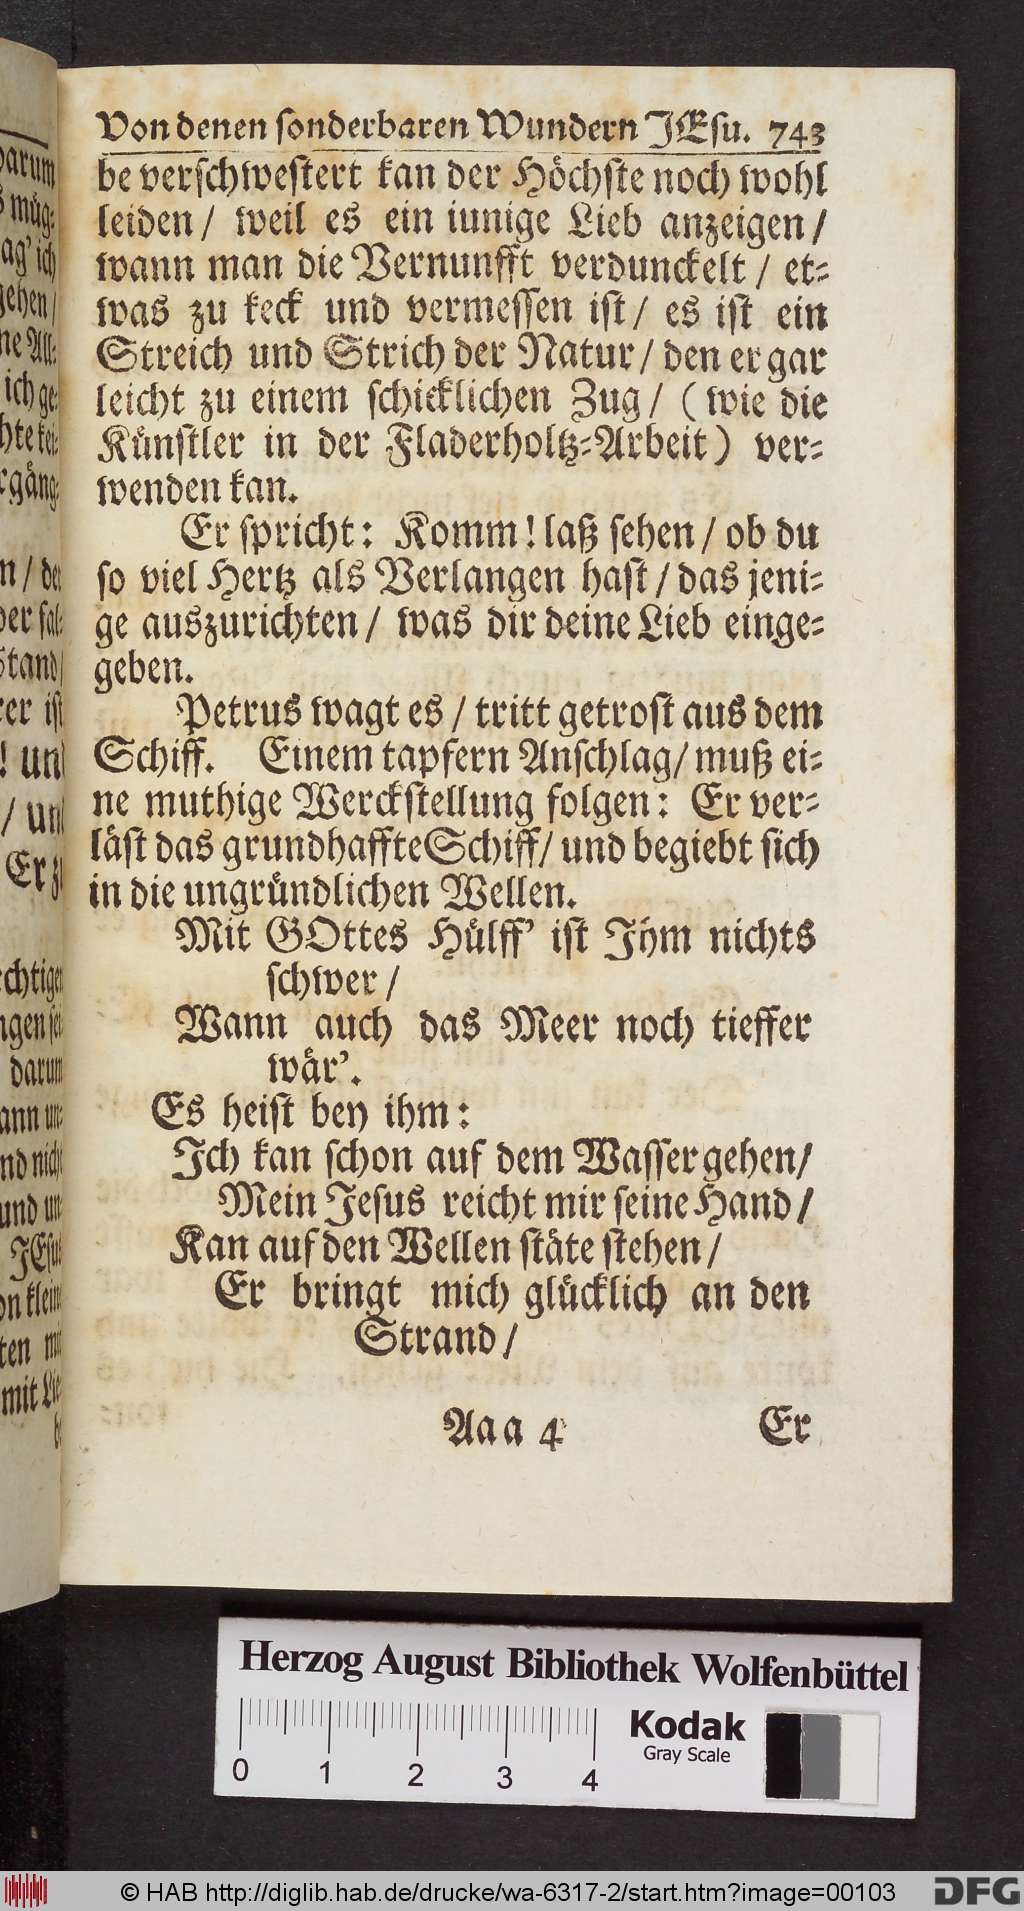 Von denen sonderbaren Wundern JEsu. 743
be verschwestert kan der Höchste noch wohl
leiden / weil es ein iunige Lieb anzeigen /
wann man die Vernunfft verdunckelt / et-
was zu keck und vermessen ist / es ist ein
Streich und Strich der Natur / den er gar
leicht zu einem schicklichen Zug / ( wie die
Künstler in der Fladerholtz-Arbeit) ver-
wenden kan.
Er spricht: Komm! laß sehen / ob du
so viel Hertz als Verlangen hast / das jeni-
ge auszurichten / was dir deine Lieb einge-
geben.
Petrus wagt es / tritt getrost aus dem
Schiff. Einem tapfern Anschlag / muß ei-
ne muthige Werckstellung folgen: Er ver-
läst das grundhaffte Schiff / und begiebt sich
in die ungründlichen Wellen.
Mit GOttes Hülff' ist Jhm nichts
schwer /
Wann auch das Meer noch tieffer
wär'.
Es heist bey ihm:
Jch kan schon auf dem Wasser gehen /
Mein Jesus reicht mir seine Hand /
Kan auf den Wellen stäte stehen /
Er bringt mich glücklich an den
Strand /
Aaa 4 Er
Herzog August Bibliothek Wolfenbüttel
0 1 2 3 4
Kodak
Gray Scale
© HAB http://diglib.hab.de/drucke/wa-6317-2/start.htm?image=00103
DFG